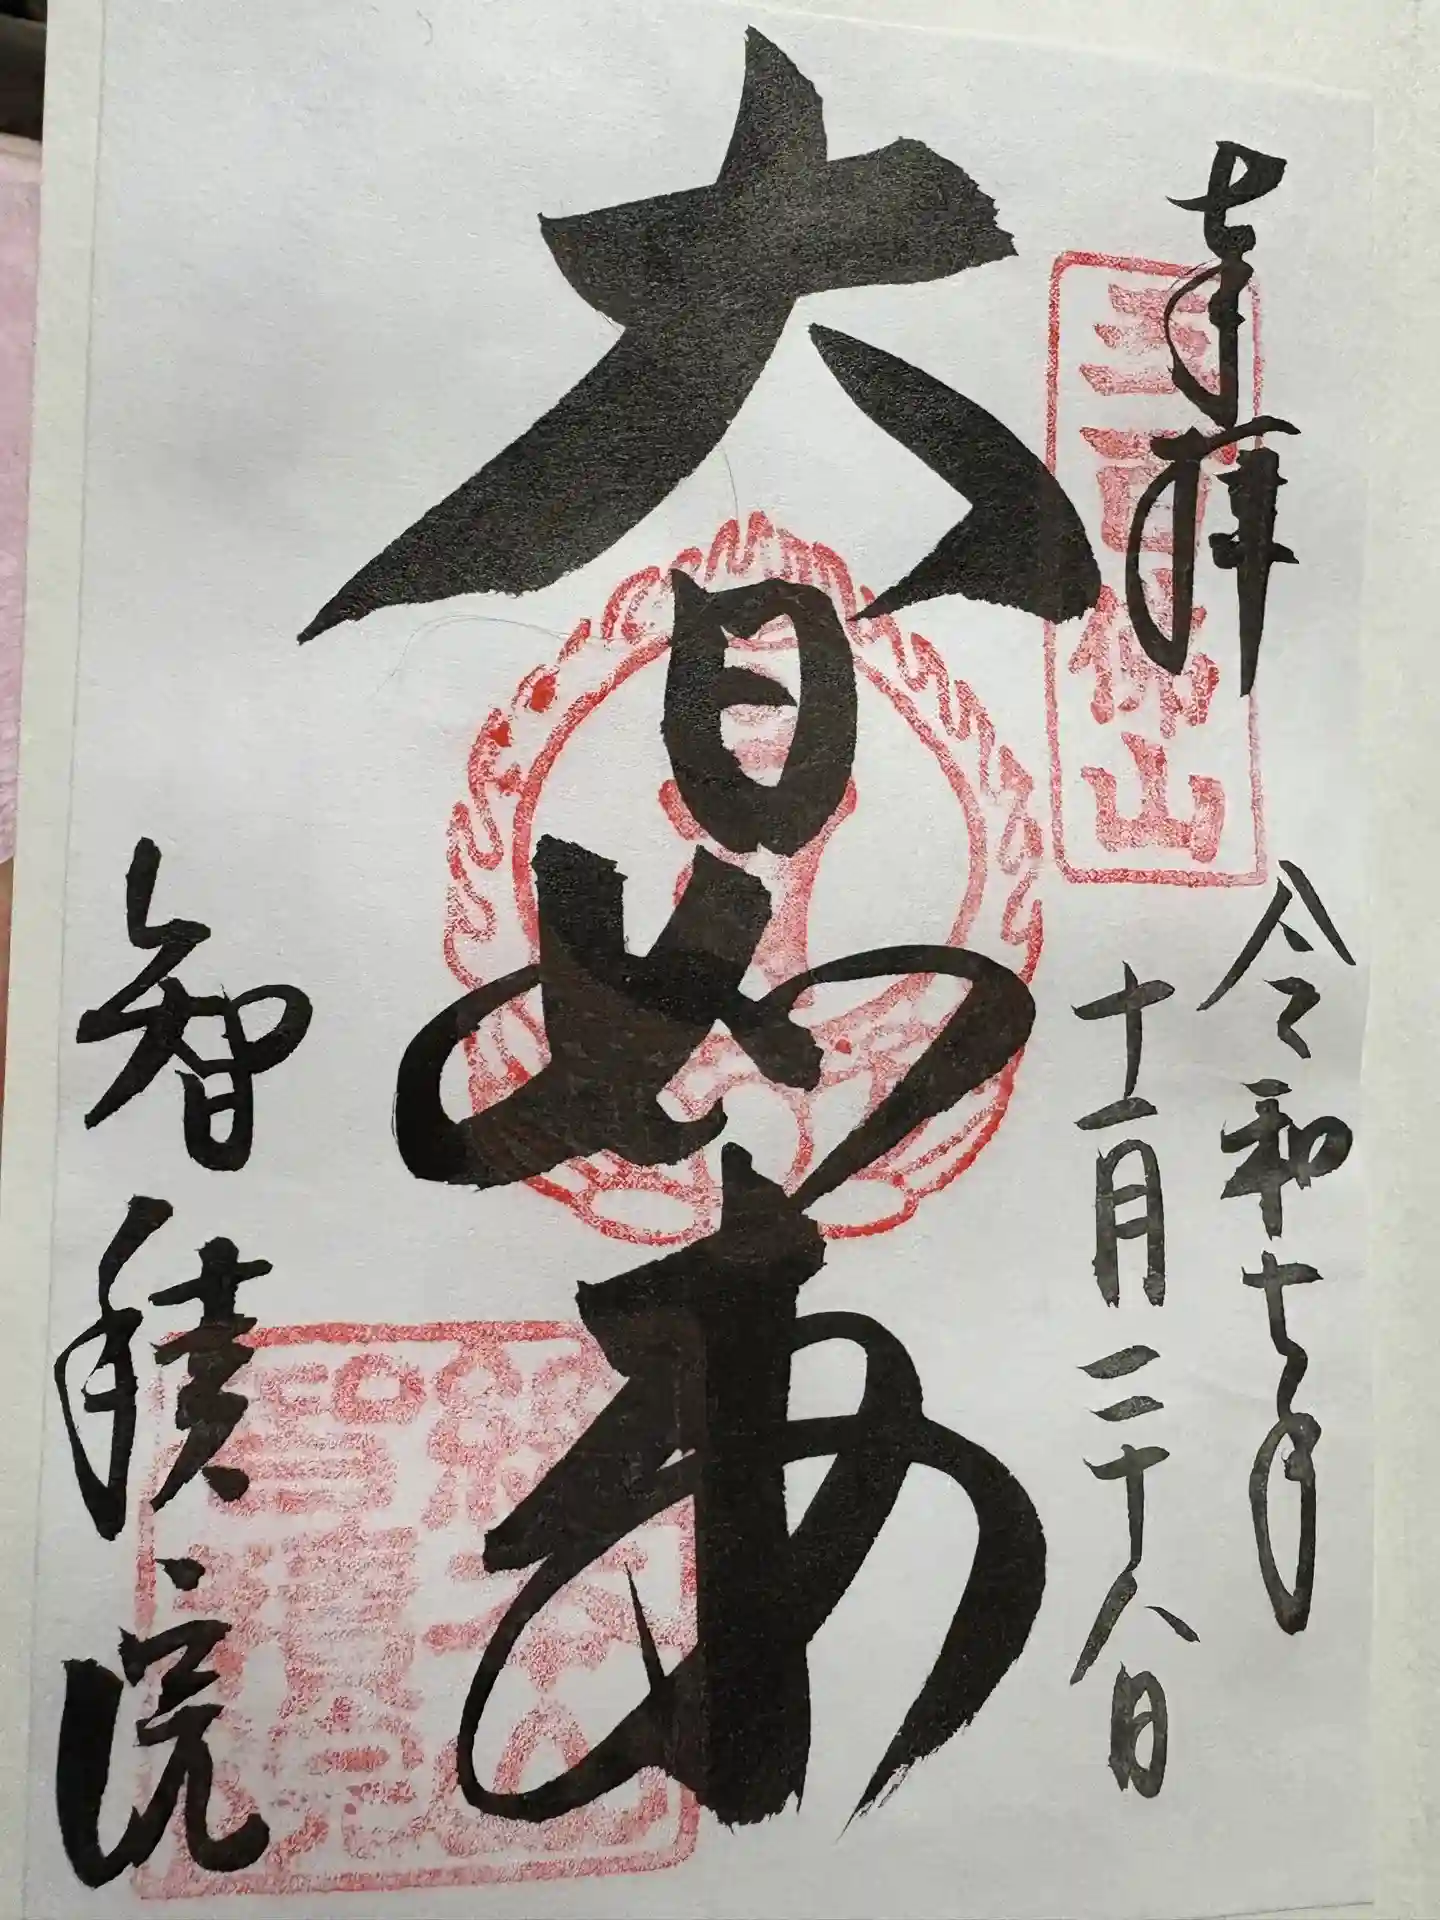 奉拝
五百佛山
令和七年
十一月二十八日
大日如来
智積院